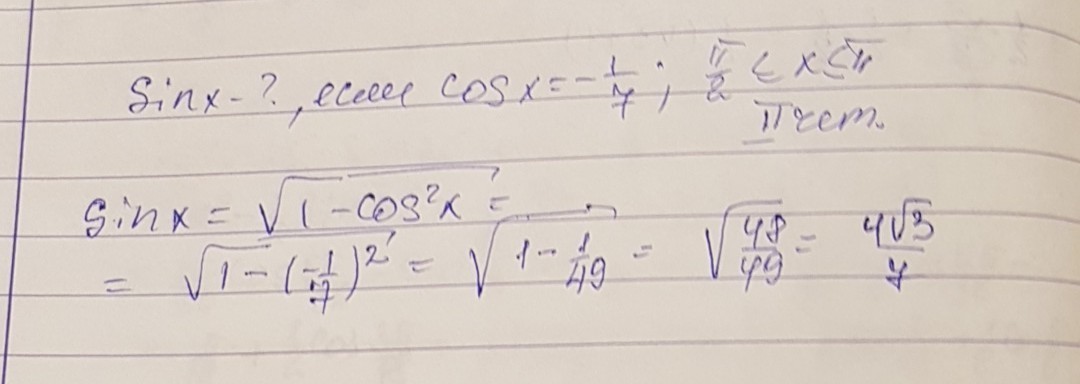 Sinx-?, если cosx=-1/7; π/2 ≤ x ≤ π
II чет.
Sinx = √(1-cos²x) =
= √(1-(-1/7)²) = √(1-1/49) = √(48/49) = 4√3/7